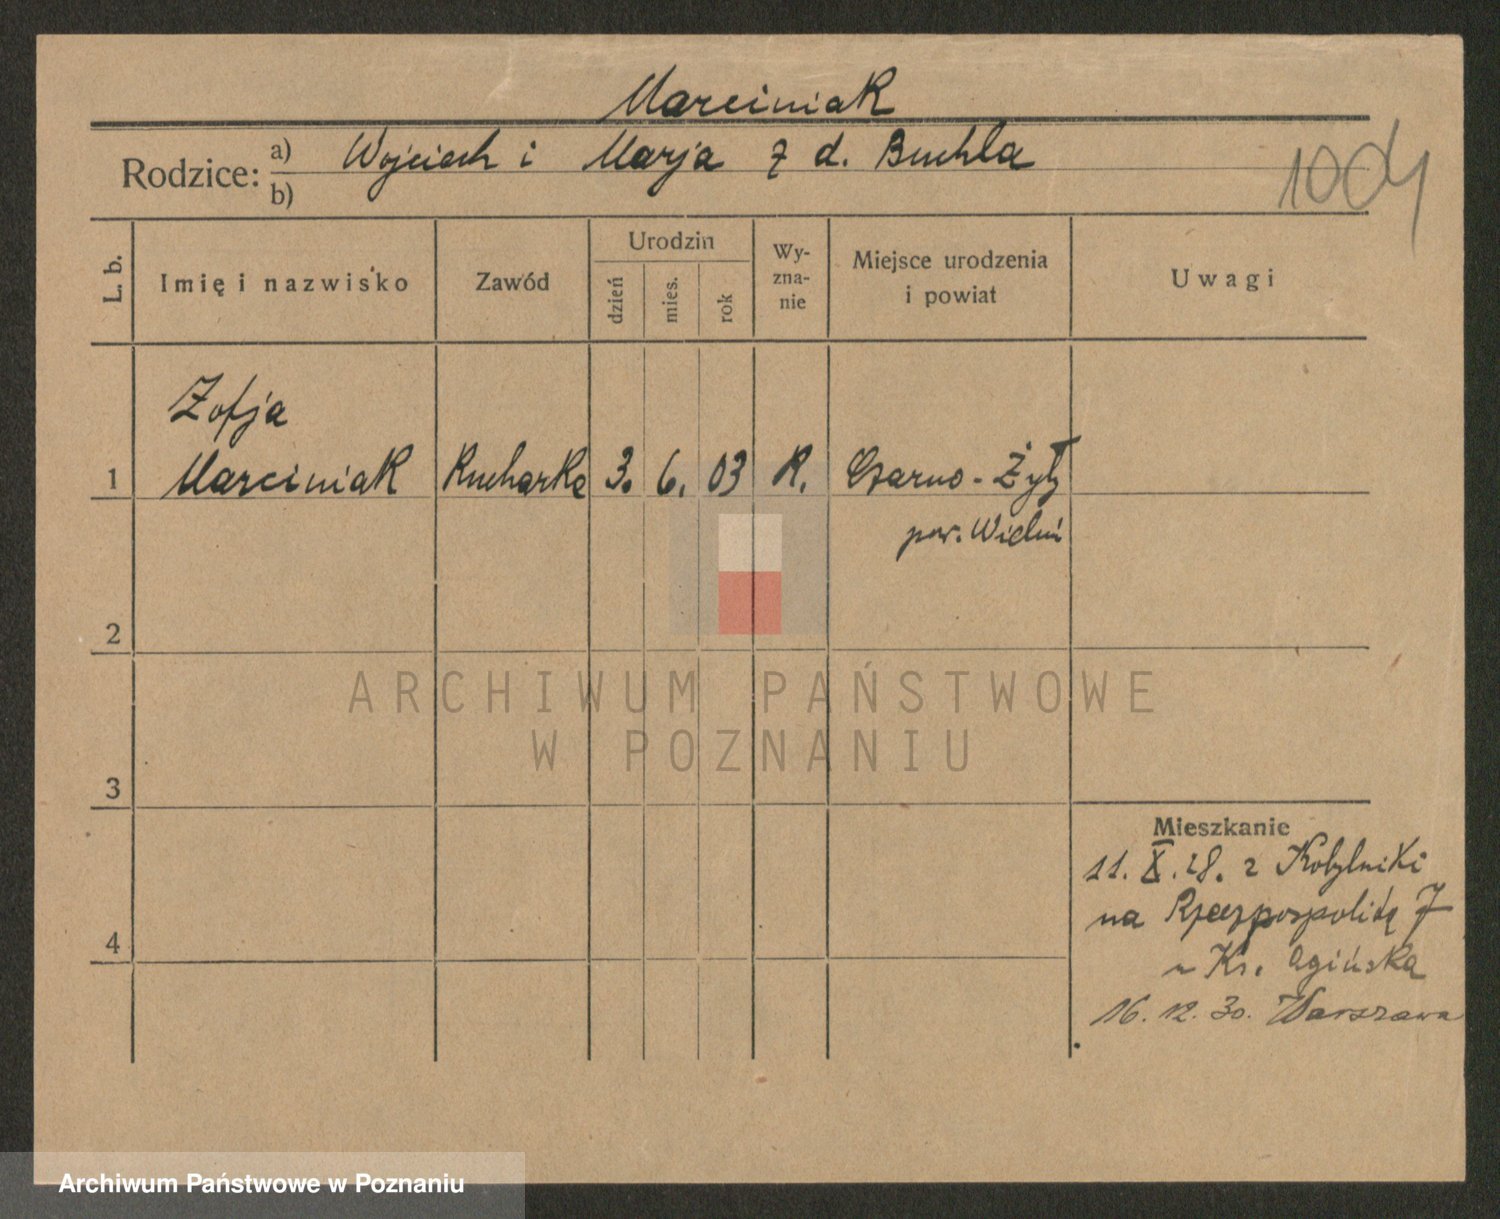 Marciniak
Rodzice: a) Wojciech i Marja z d. Buchla
b)
1004
L. b.
Imię i nazwisko
Zawód
Urodzin
dzień
mies.
rok
Wy-
zna-
nie
Miejsce urodzenia
i powiat
Uwagi
Zofja
1 Marciniak Kucharka 3. 6. 03 R. Czarno-Żyły
pow. Wieluń
2
ARCHIWUM PAŃSTWOWE
W POZNANIU
3
Mieszkanie
11. X. 28. z Kobylniki
na Rzeczpospolitą 7
u Ks. Ogińska
4
16. 12. 30. Warszawa
Archiwum Państwowe w Poznaniu